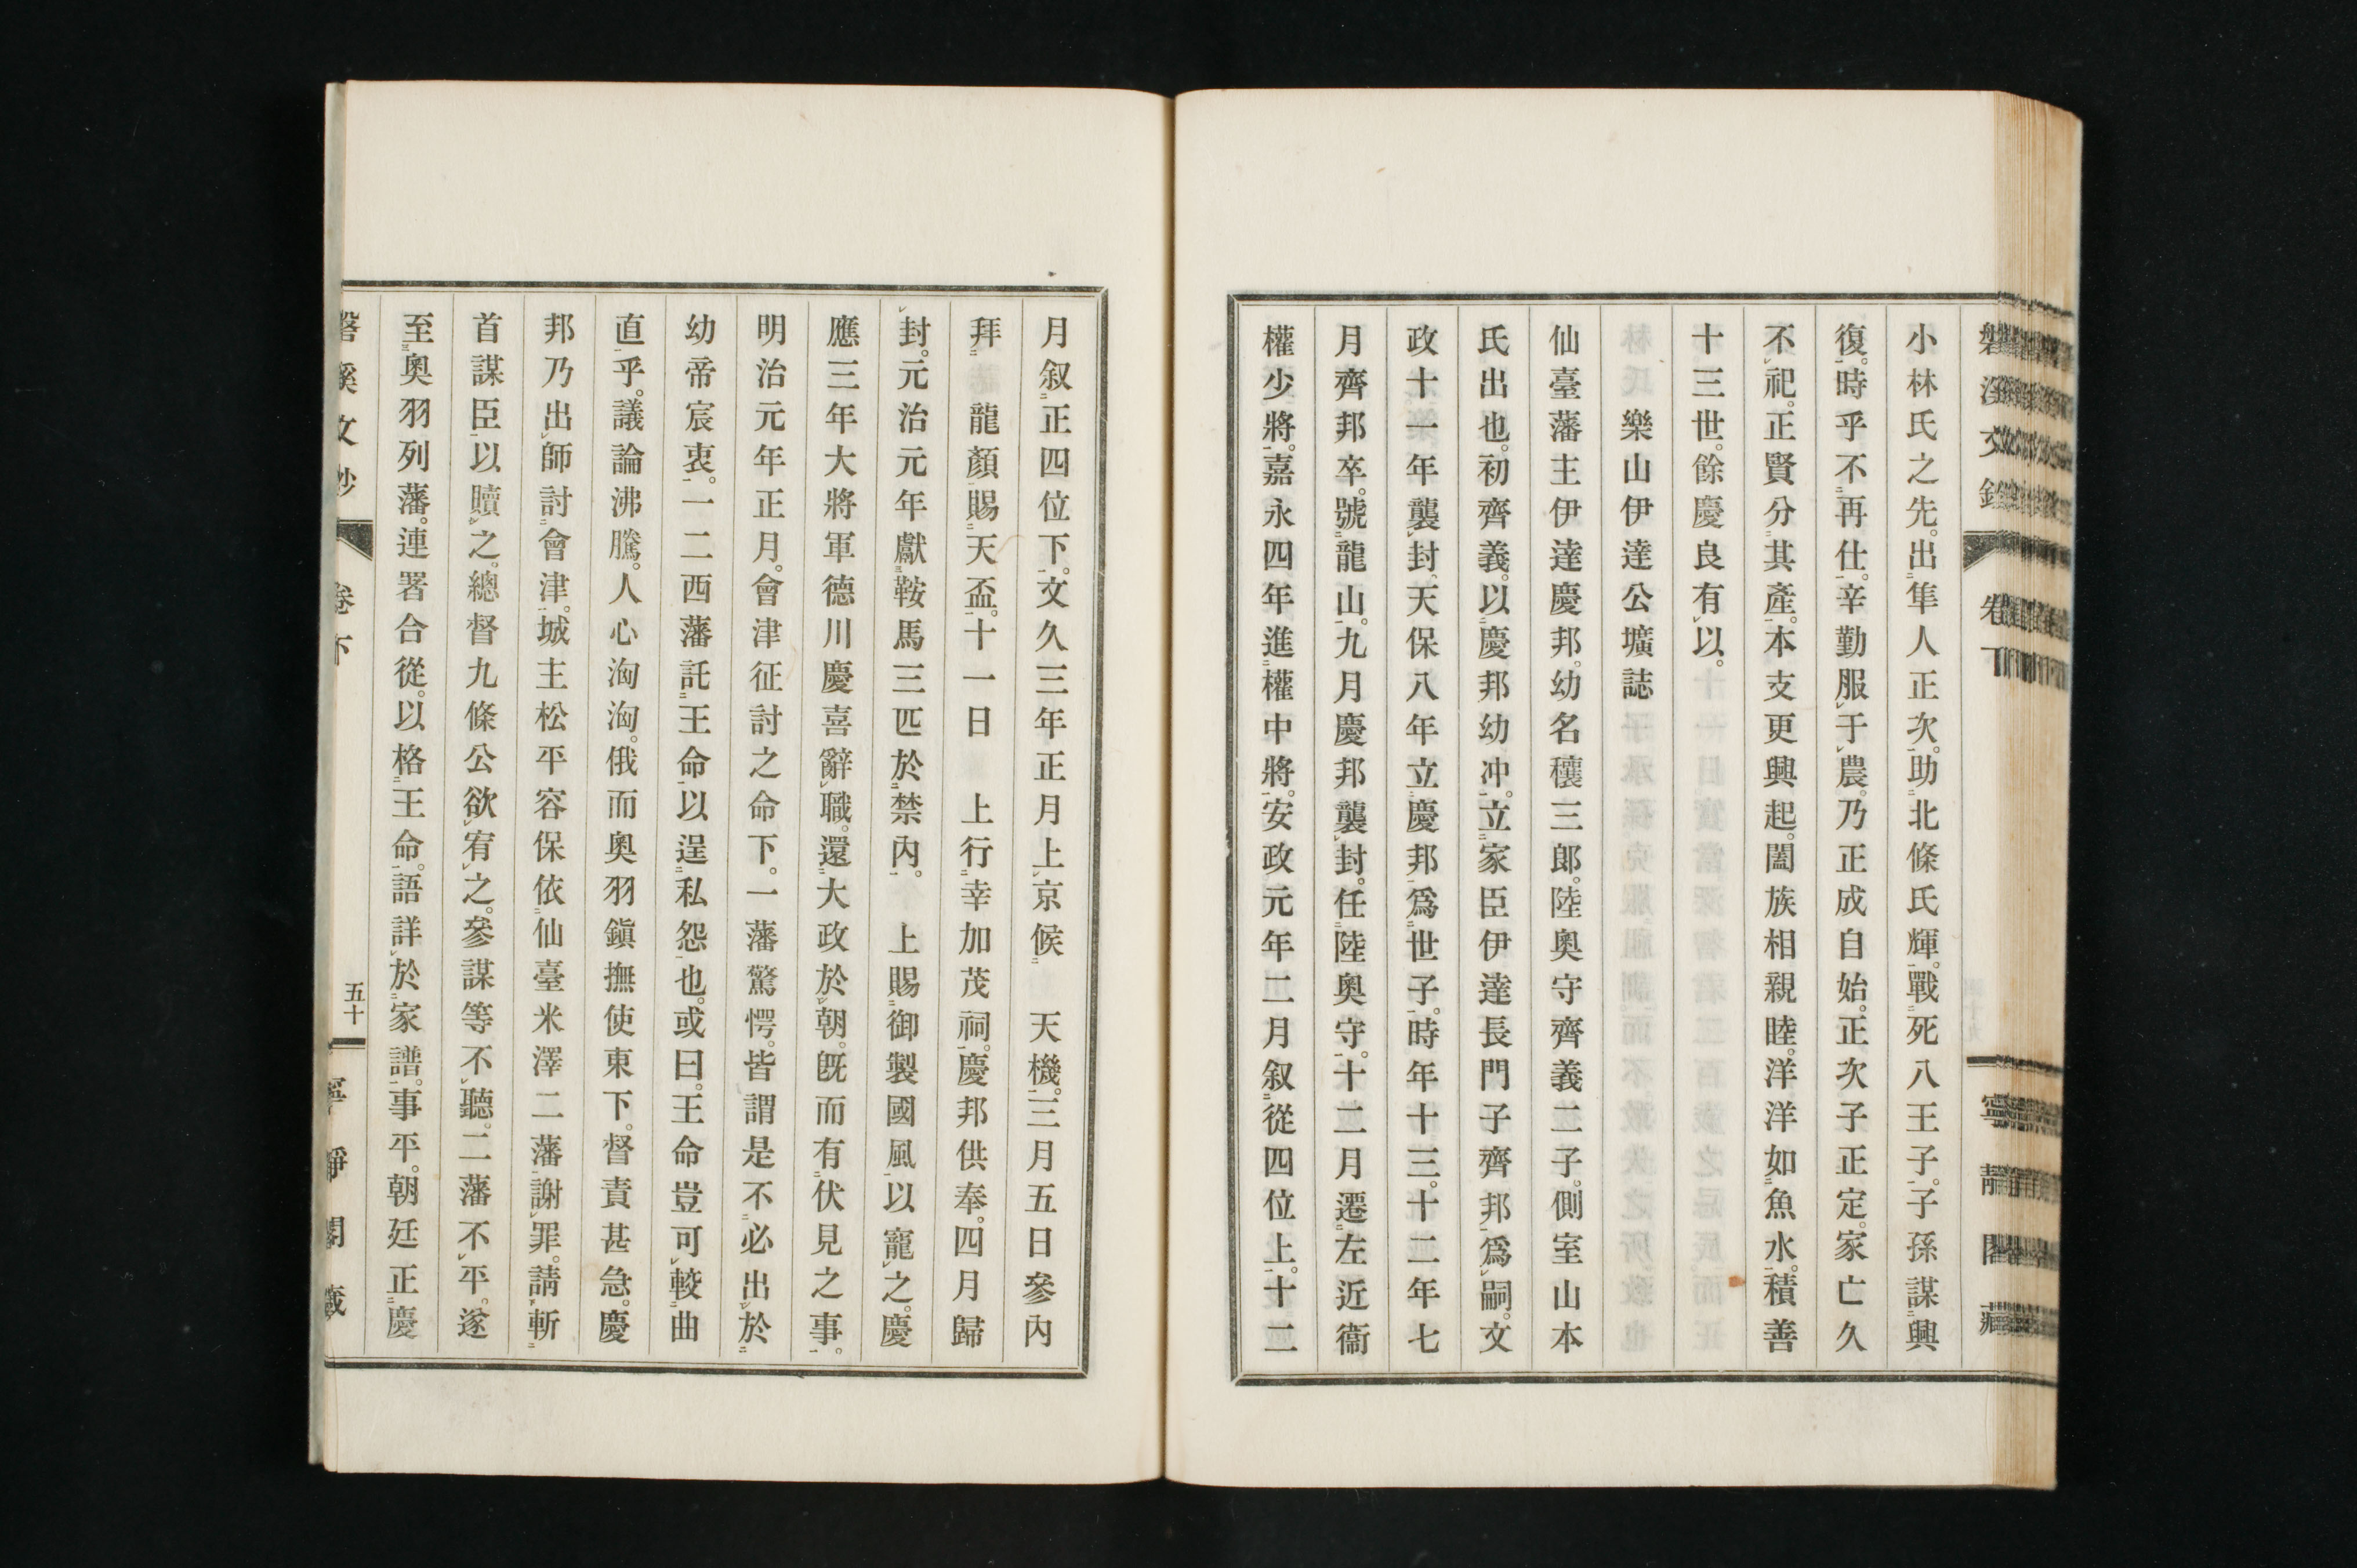 小林氏之先。出隼人正次。助北條氏輝。戰死八王子。子孫謀興
復。時乎不再仕。辛勤服于農。乃正成自始。正次子正定。家亡久
不祀。正賢分其產。本支更興起。闔族相親睦。洋洋如魚水。積善
十三世。餘慶良有以。
樂山伊達公壙誌
仙臺藩主伊達慶邦。幼名穰三郎。陸奧守齊義二子。側室山本
氏出也。初齊義。以慶邦幼冲。立家臣伊達長門子齊邦爲嗣。文
政十一年襲封。天保八年立慶邦爲世子。時年十三。十二年七
月齊邦卒。號龍山。九月慶邦襲封。任陸奧守。十二月遷左近衞
權少將。嘉永四年進權中將。安政元年二月叙從四位上。十二
月叙正四位下。文久三年正月上京候 天機。三月五日參內
拜 龍顏賜天盃。十一日 上行幸加茂祠。慶邦供奉。四月歸
封。元治元年獻鞍馬三匹於禁內。 上賜御製國風以寵之。慶
應三年大將軍德川慶喜辭職。還大政於朝。旣而有伏見之事。
明治元年正月。會津征討之命下。一藩驚愕。皆謂是不必出於
幼帝宸衷。一二西藩託王命以逞私怨也。或曰。王命豈可較曲
直乎。議論沸騰。人心洶洶。俄而奧羽鎭撫使東下。督責甚急。慶
邦乃出師討會津。城主松平容保依仙臺米澤二藩謝罪。請斬
首謀臣以贖之。總督九條公欲宥之。參謀等不聽。二藩不平。遂
至奧羽列藩。連署合從。以格王命。語詳於家譜。事平。朝廷正慶
磐溪文鈔 卷下 五十 寧靜閣藏